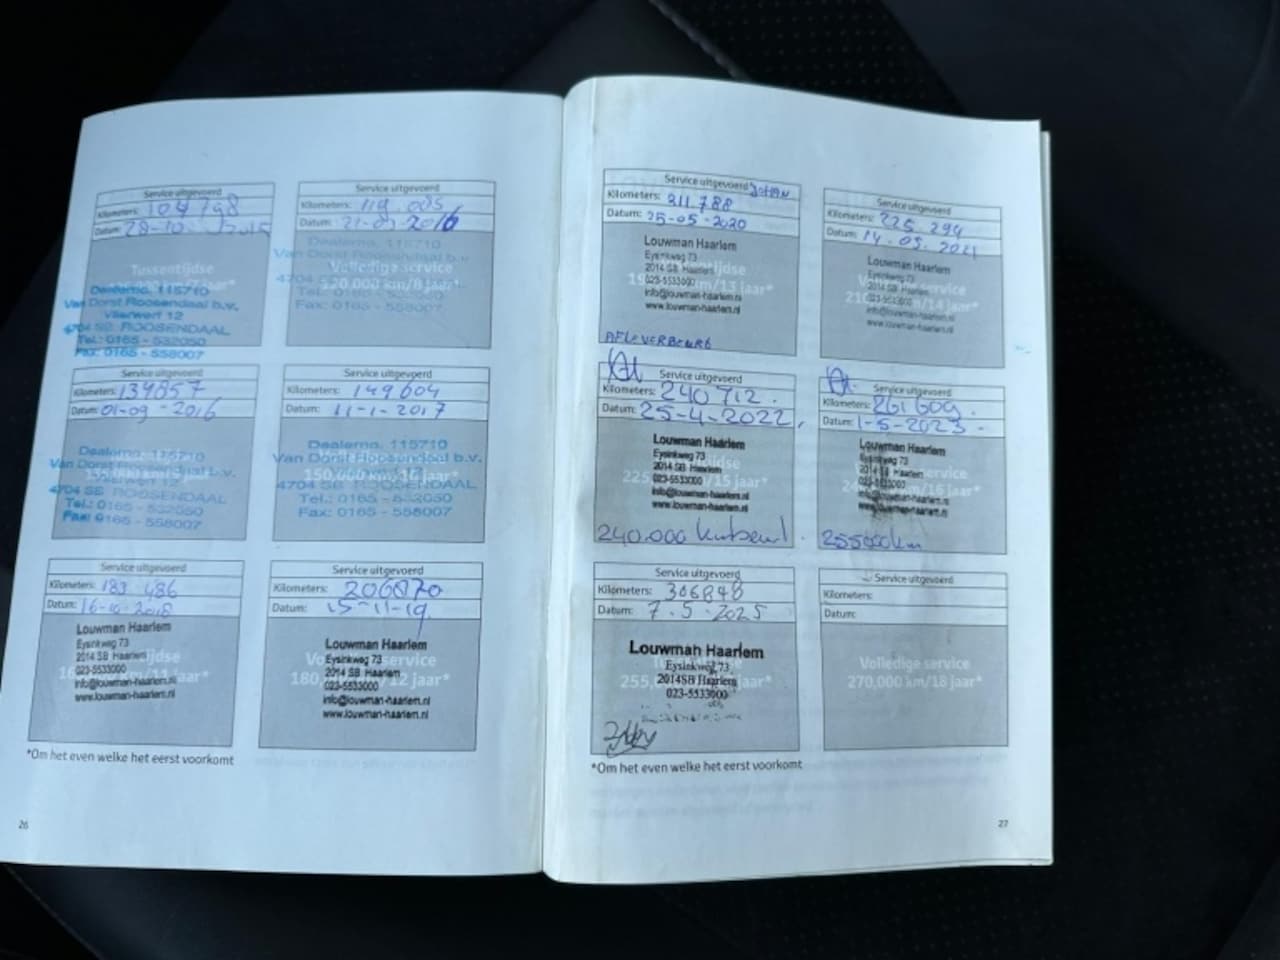 Service uitgevoerd
Kilometers: 104798
Datum: 28-10-2015
Tussentijdse
Dealerno. 115710
Van Dorst Roosendaal b.v.
Vlierwerf 12
4704 SB ROOSENDAAL
Tel.: 0165 - 532050
Fax: 0165 - 558007
Service uitgevoerd
Kilometers: 119.005
Datum: 21-03-2016
Dealerno. 115710
Van Dorst Roosendaal b.v.
Volledige service
120,000 km/8 jaar*
Tel.: 0165 - 532050
Fax: 0165 - 558007
Service uitgevoerd
Kilometers: 134857
Datum: 01-09-2016
Dealerno. 115710
Van Dorst Roosendaal b.v.
Vlierwerf 12
4704 SB ROOSENDAAL
Tel.: 0165 - 532050
Fax: 0165 - 558007
Service uitgevoerd
Kilometers: 149604
Datum: 11-1-2017
Dealerno. 115710
Van Dorst Roosendaal b.v.
150,000 km/10 jaar*
4704 SB ROOSENDAAL
Tel.: 0165 - 532050
Fax: 0165 - 558007
Service uitgevoerd
Kilometers: 183.486
Datum: 16-10-2018
Louwman Haarlem
Eysinkweg 73
2014 SB Haarlem
023-5533000
info@louwman-haarlem.nl
www.louwman-haarlem.nl
Service uitgevoerd
Kilometers: 206870
Datum: 15-11-19
Louwman Haarlem
Eysinkweg 73
2014 SB Haarlem
023-5533000
info@louwman-haarlem.nl
www.louwman-haarlem.nl
Volledige service
180,000 km/12 jaar*
*Om het even welke het eerst voorkomt
26
Service uitgevoerd
Kilometers: 211.788
Datum: 25-05-2020
Louwman Haarlem
Eysinkweg 73
2014 SB Haarlem
023-5533000
info@louwman-haarlem.nl
www.louwman-haarlem.nl
AFLEVERBEURT
Service uitgevoerd
Kilometers: 225.294
Datum: 14.05.2021
Louwman Haarlem
Eysinkweg 73
2014 SB Haarlem
023-5533000
info@louwman-haarlem.nl
www.louwman-haarlem.nl
Service uitgevoerd
Kilometers: 240712.
Datum: 25-4-2022,
Louwman Haarlem
Eysinkweg 73
2014 SB Haarlem
023-5533000
info@louwman-haarlem.nl
www.louwman-haarlem.nl
240.000 km beurt.
Service uitgevoerd
Kilometers: 261609.
Datum: 1-5-2023-
Louwman Haarlem
Eysinkweg 73
2014 SB Haarlem
023-5533000
info@louwman-haarlem.nl
www.louwman-haarlem.nl
255000km
Service uitgevoerd
Kilometers: 306848
Datum: 7.5.2025
Louwman Haarlem
Eysinkweg 73
2014SB Haarlem
023-5533000
255,000 km/17 jaar*
Service uitgevoerd
Kilometers:
Datum:
Volledige service
270,000 km/18 jaar*
*Om het even welke het eerst voorkomt
27